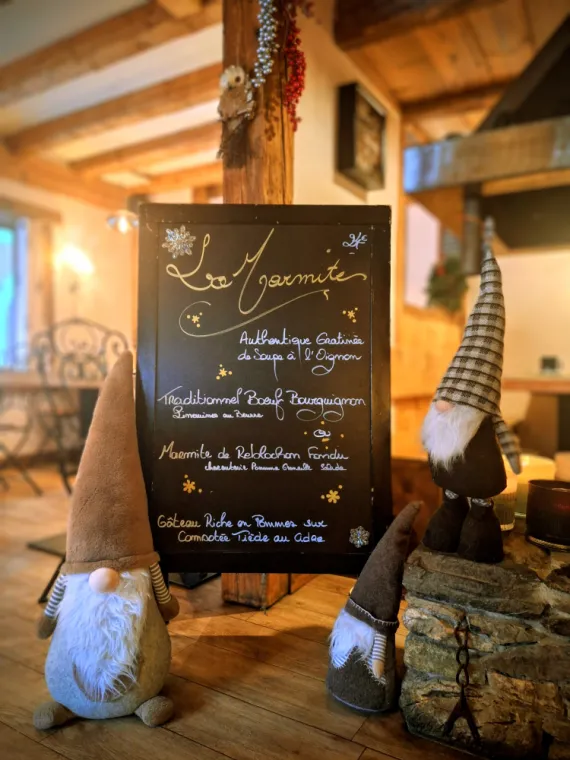 24€
La Marmite
Authentique Gratinée
de Soupe à l'Oignon
Traditionnel Bœuf Bourguignon
au Beurre
ou
Marmite de Reblochon Fondu
charcuterie Pomme Grenaille Salade
Gâteau Riche en Pommes sur
Compotée Tiède au Cidre